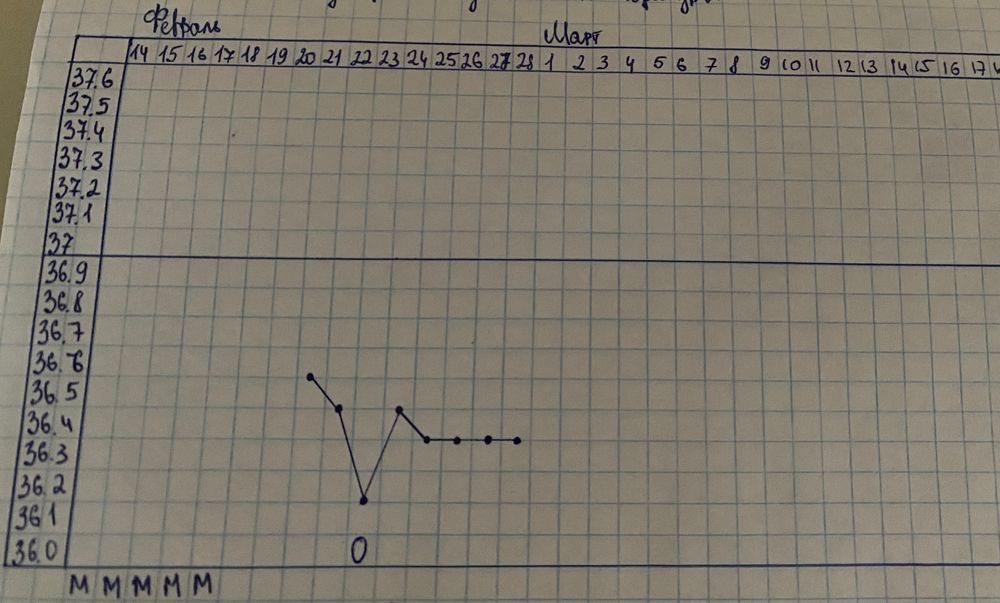 Февраль Март
14 15 16 17 18 19 20 21 22 23 24 25 26 27 28 1 2 3 4 5 6 7 8 9 10 11 12 13 14 15 16 17
37.6
37.5
37.4
37.3
37.2
37.1
37
36.9
36.8
36.7
36.6
36.5
36.4
36.3
36.2
36.1
36.0 O
М М М М М